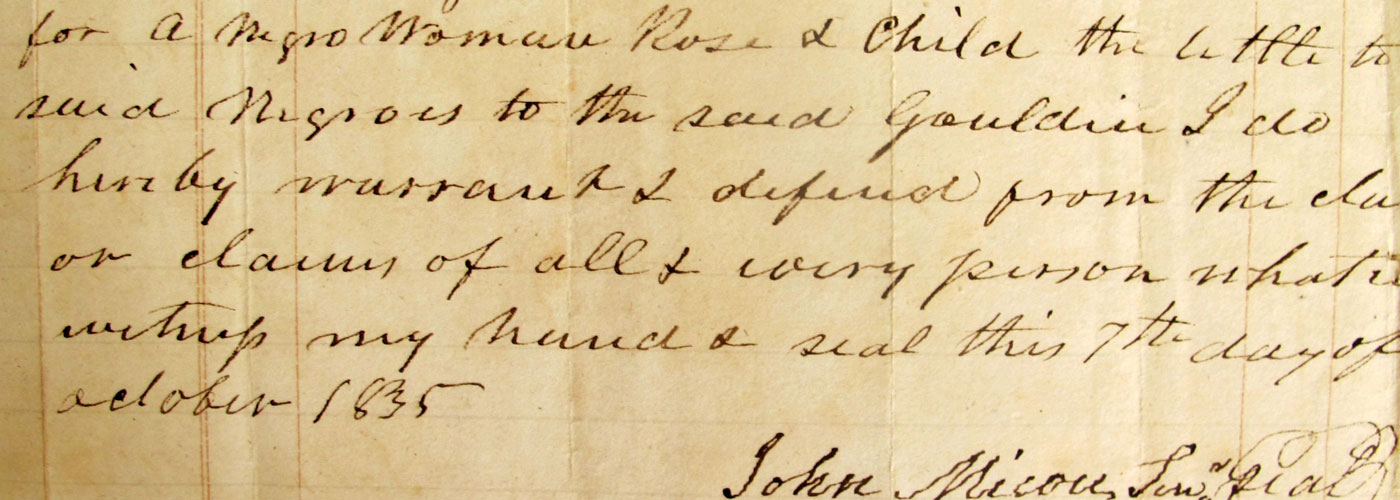 for a Negro Woman Rose & Child the tittle to
said Negroes to the said Gouldin I do
hereby warrant & defend from the cla
or claims of all & every person whats
witness my hand & seal this 7th day of
october 1835
John Micou, Senr Seal